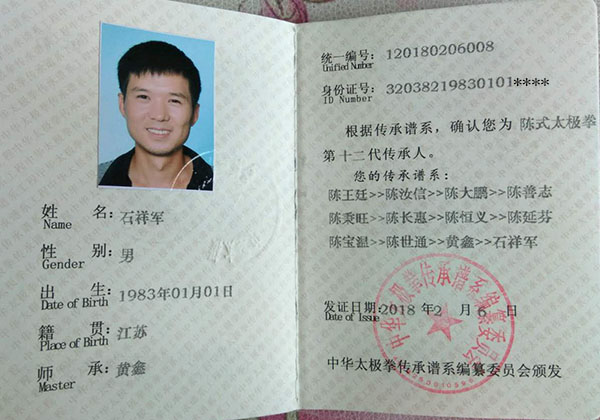 姓 名：石祥军
Name
性 别：男
Gender
出 生：1983年01月01日
Date of Birth
籍 贯：江苏
Place of Birth
师 承：黄鑫
Master
统一编号：120180206008
Unified Number
身份证号：32038219830101****
ID Number
根据传承谱系，确认您为 陈式太极拳
第 十二代传承人。
您的传承谱系：
陈王廷>>陈汝信>>陈大鹏>>陈善志
陈秉旺>>陈长惠>>陈恒义>>陈延芬
陈宝温>>陈世通>>黄鑫>>石祥军
发证日期：2018 年2 月 6 日
Date of Issue
中华太极拳传承谱系编纂委员会
中华太极拳传承谱系编纂委员会颁发